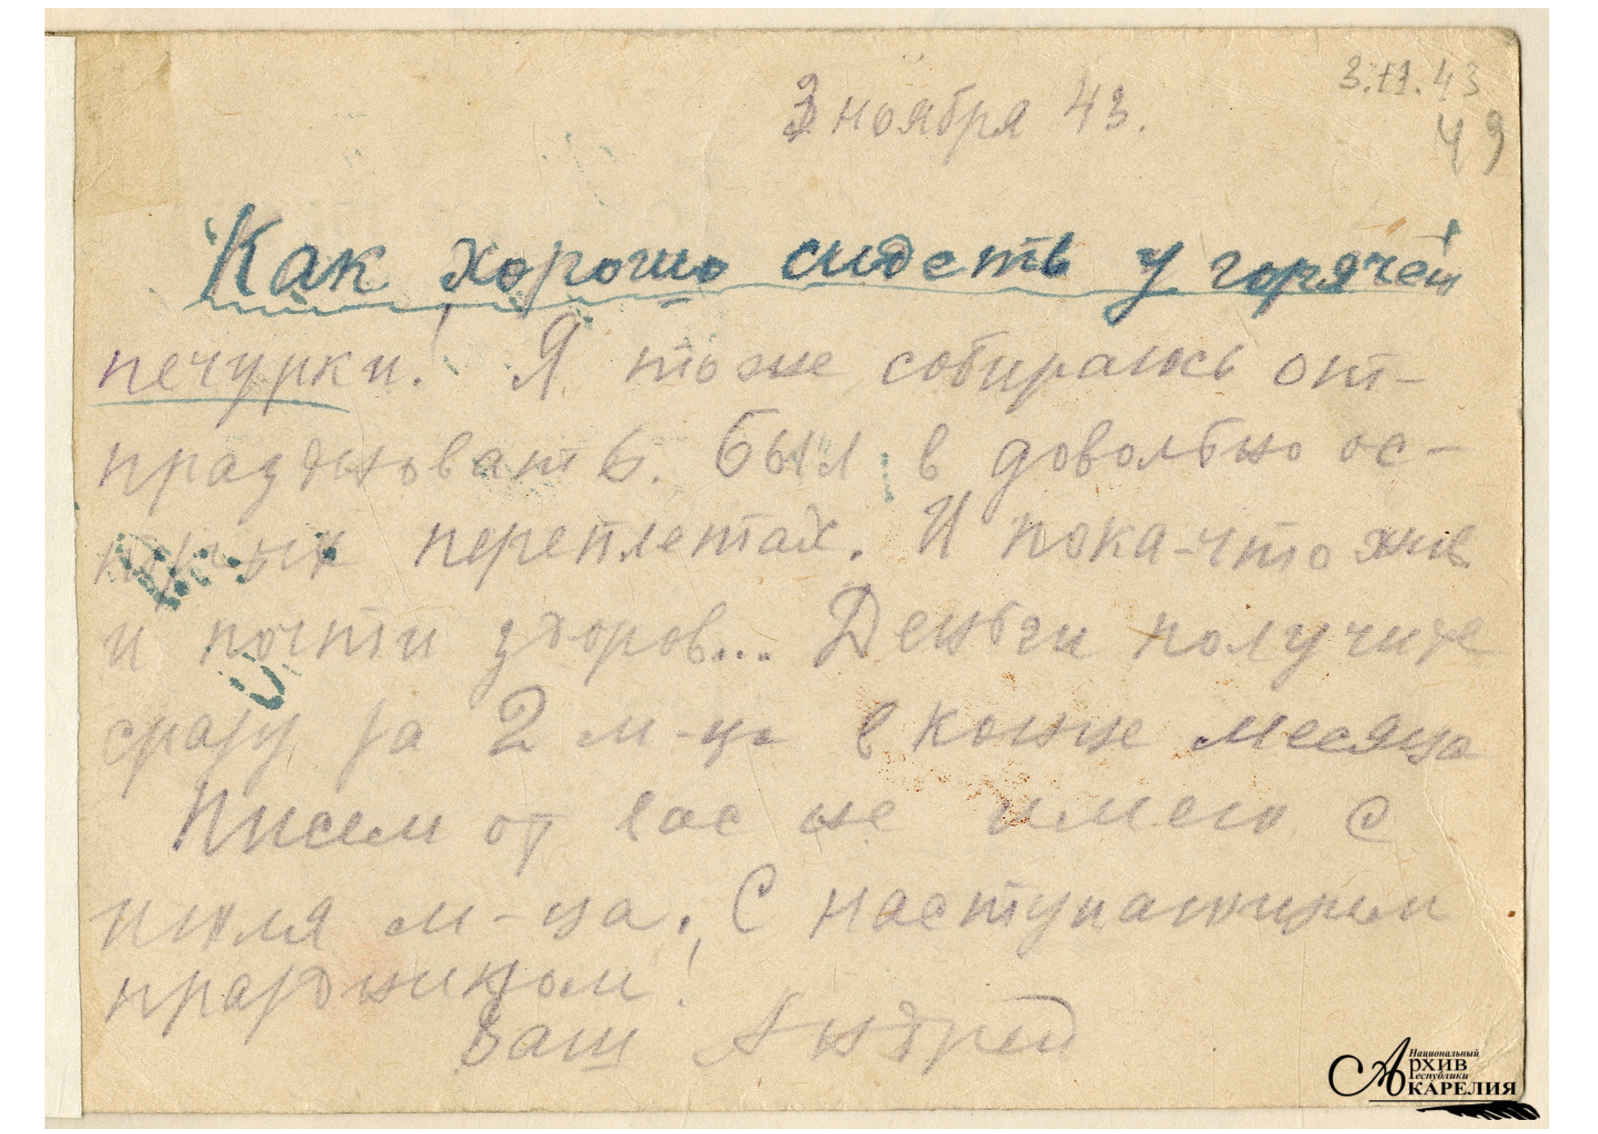 3.11.43
49
3 ноября 43.
Как хорошо сидеть у горячей
печурки! Я тоже собираюсь от-
праздновать. Был в довольно ос-
трых переплетах. И пока-что жив
и почти здоров... Деньги получите
сразу за 2 м-ца в конце месяца
Писем от вас не имею с
июля м-ца. С наступающим
праздником!
Ваш Андрей
Национальный
Архив
Республики
Карелия